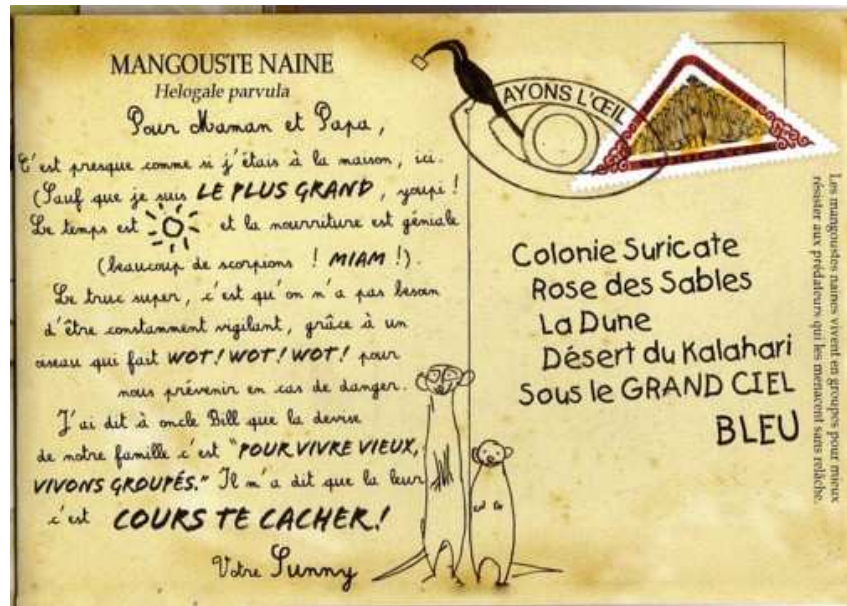 MANGOUSTE NAINE
Helogale parvula
Pour Maman et Papa,
C'est presque comme si j'étais à la maison, ici.
(Sauf que je suis LE PLUS GRAND, youpi !
Le temps est et la nourriture est géniale
(beaucoup de scorpions ! MIAM !).
Le truc super, c'est qu'on n'a pas besoin
d'être constamment vigilant, grâce à un
oiseau qui fait WOT! WOT! WOT! pour
nous prévenir en cas de danger.
J'ai dit à oncle Bill que la devise
de notre famille c'est "POUR VIVRE VIEUX,
VIVONS GROUPÉS." Il m'a dit que la leur
c'est COURS TE CACHER!
Votre Sunny
AYONS L'ŒIL
SURICATE
Colonie Suricate
Rose des Sables
La Dune
Désert du Kalahari
Sous le GRAND CIEL
BLEU
Les mangoustes naines vivent en groupes pour mieux
résister aux prédateurs qui les menacent sans relâche.